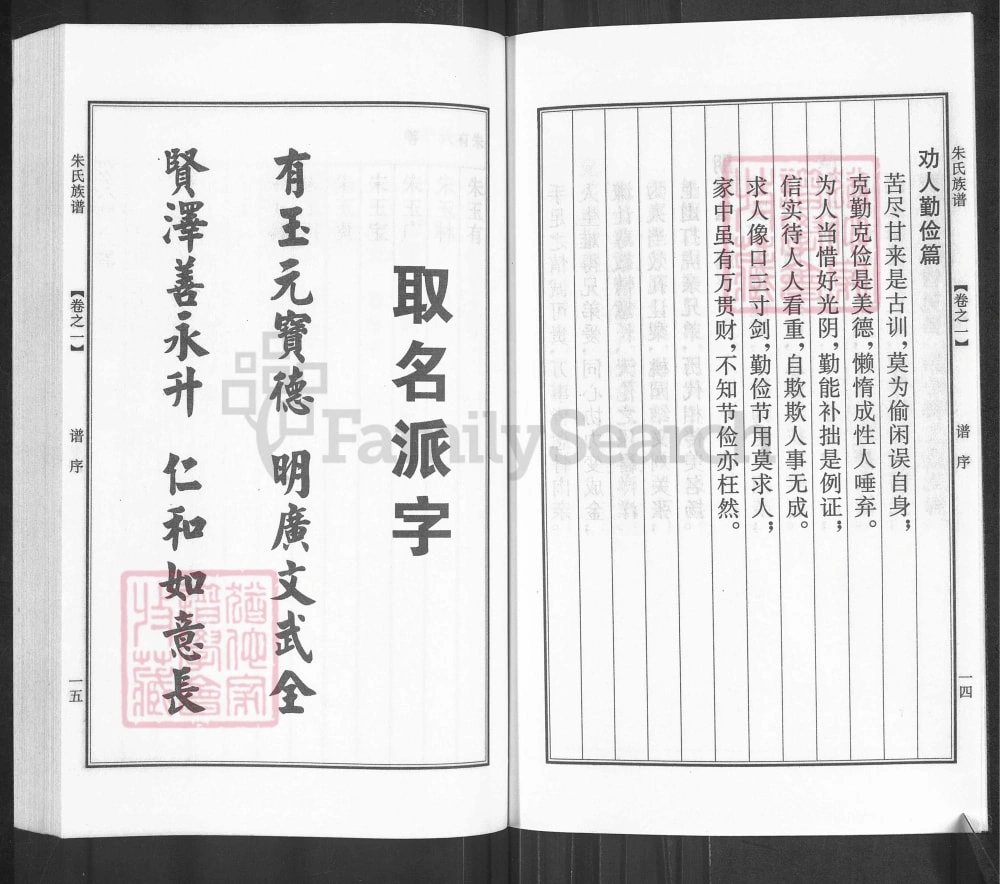 朱氏族谱
【卷之一】
谱序
一四
劝人勤俭篇
苦尽甘来是古训，莫为偷闲误自身；
克勤克俭是美德，懒惰成性人唾弃。
为人当惜好光阴，勤能补拙是例证；
信实待人人看重，自欺欺人事无成。
求人像口三寸剑，勤俭节用莫求人；
家中虽有万贯财，不知节俭亦枉然。
取名派字
有玉元寶德 明廣文武全
賢澤善永升 仁和如意長
朱氏族谱
【卷之一】
谱序
一五
FamilySearch